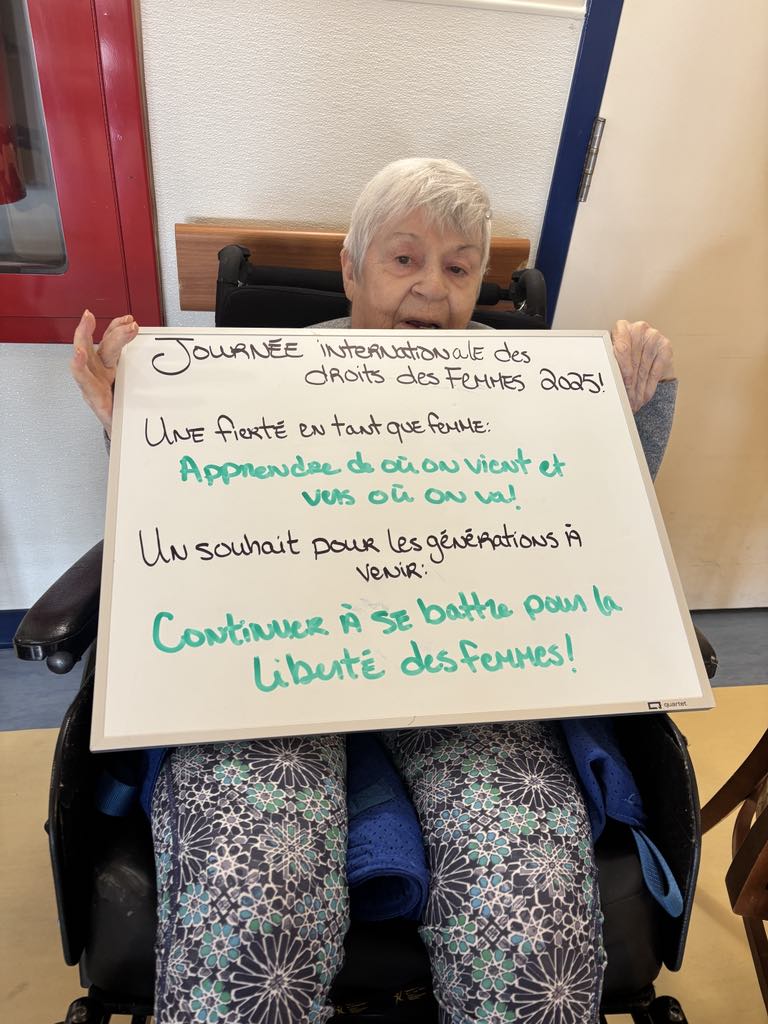 Journée internationale des
droits des femmes 2025!
Une fierté en tant que femme:
Apprendre de où on vient et
vers où on va!
Un souhait pour les générations à
venir:
Continuer à se battre pour la
liberté des femmes!
quartet